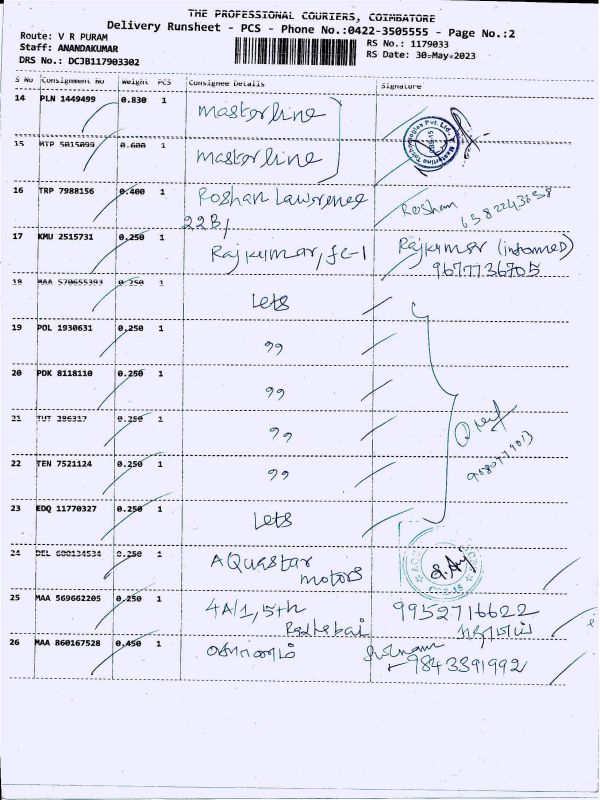 THE PROFESSIONAL COURIERS, COIMBATORE
Delivery Runsheet - PCS - Phone No.:0422-3505555 - Page No.:2
Route: V R PURAM
Staff: ANANDAKUMAR
DRS No.: DCJB117903302
RS No.: 1179033
RS Date: 30-May-2023
S No Consignment No Weight PCS Consignee Details Signature
14 PLN 1449499 0.830 1 Masterline
15 MTP 5015099 0.600 1 Masterline
16 TRP 7988156 0.400 1 Roshan Lawrence Roshan
22B/
17 KMU 2515731 0.250 1 Rajkumar, fc-1 Rajkumar (informed)
9677736705
18 MAA 570655393 0.250 1 Lets
19 POL 1930631 0.250 1 "
20 PDK 8118110 0.250 1 "
21 TUT 286317 0.250 1 "
22 TEN 7521124 0.250 1 "
23 EDQ 11770327 0.250 1 Lets
24 DEL 600134534 0.250 1 AQuastar
motors
25 MAA 569662205 0.250 1 4A/1, 5th 9952716622
26 MAA 860167528 0.450 1 9843391992